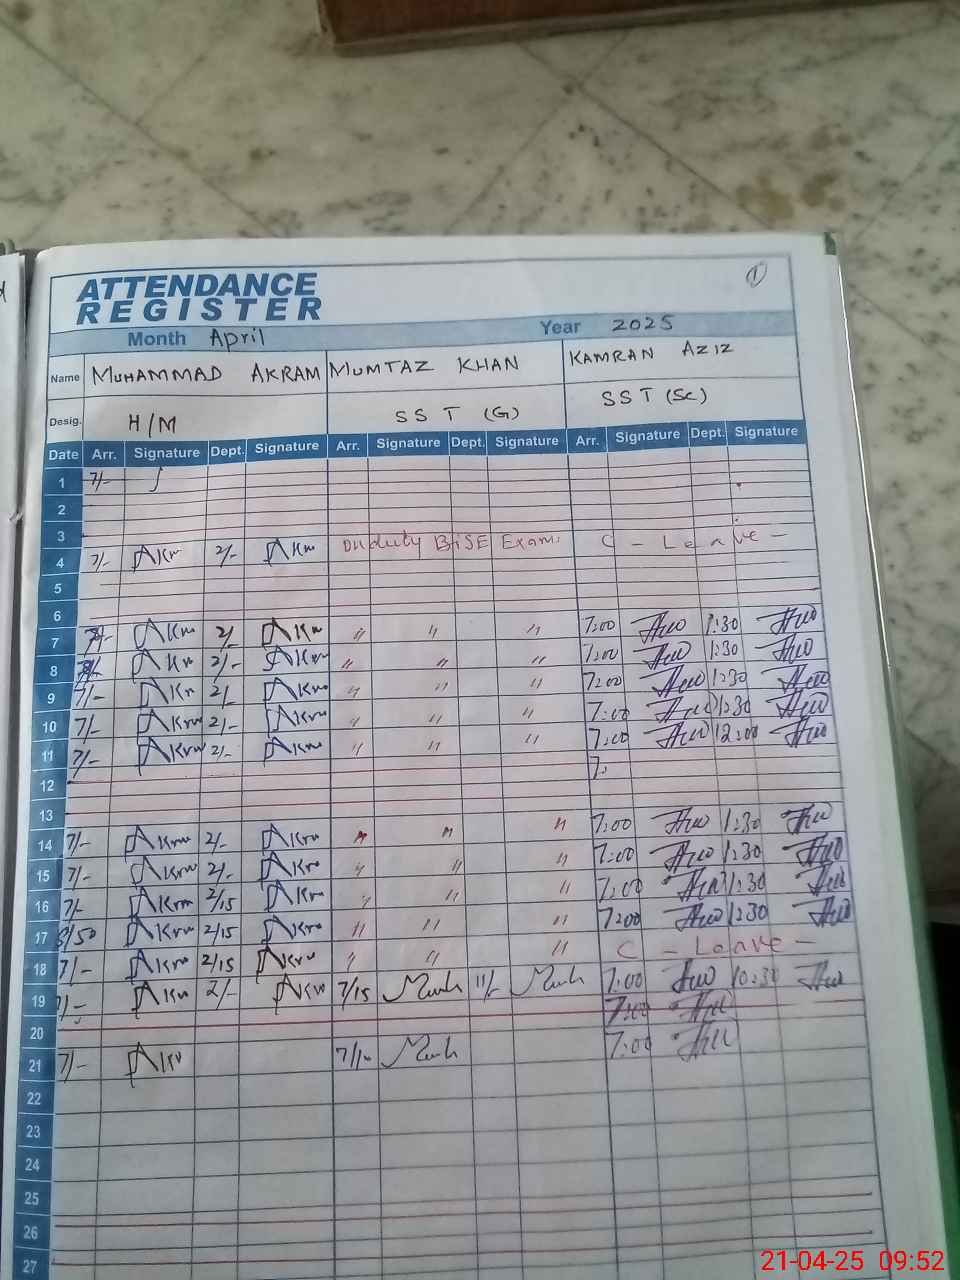 1
ATTENDANCE
REGISTER
Month April Year 2025
Name MUHAMMAD AKRAM MUMTAZ KHAN KAMRAN AZIZ
Desig. H/M SST (G) SST (Sc)
Date Arr. Signature Dept. Signature Arr. Signature Dept. Signature Arr. Signature Dept. Signature
1 7/-
2
3
4 7/- Akm 2/- Akm Onduty BISE Exam: C - Leave -
5
6
7 Akm 2/- Akm " " " 7:00 1:30
8 Akm 2/- Akm " " " 7:00 1:30
9 7/- Akm 2/- Akm " " " 7:00 1:30
10 7/- Akm 2/- Akm " " " 7:00 1:30
11 7/- Akm 2/- Akm " " " 7:00 12:00
12 7:
13
14 7/- Akm 2/- Akm " " " 7:00 1:30
15 7/- Akm 2/- Akm " " " 7:00 1:30
16 7/- Akm 2/15 Akm " " " 7:00 1:30
17 8/50 Akm 2/15 Akm " " " 7:00 1:30
18 7/- Akm 2/15 Akm " " " C - Leave -
19 7/- Akm 2/- Akm 7/15 11/- 7:00 10:30
20 7:00
21 7/- Akm 7/10 7:00
22
23
24
25
26
27
21-04-25 09:52